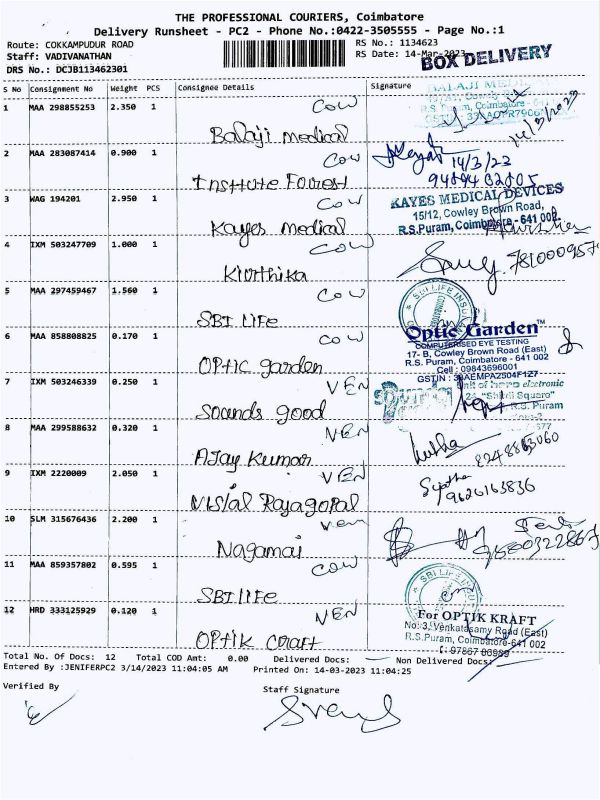 THE PROFESSIONAL COURIERS, Coimbatore
Delivery Runsheet - PC2 - Phone No.:0422-3505555 - Page No.:1
Route: COKKAMPUDUR ROAD
RS No.: 1134623
Staff: VADIVANATHAN
RS Date: 14-Mar-2023
BOX DELIVERY
DRS No.: DCJB113462301
S No Consignment No Weight PCS Consignee Details Signature
1 MAA 298855253 2.350 1 COW
Balaji medical
BALAJI MEDIC
R.S. Puram, Coimbatore
14/3/2023
2 MAA 283087414 0.900 1 COW
Institute Forest
14/3/23
3 WAG 194201 2.950 1 COW
Kayes medical
KAYES MEDICAL DEVICES
15/12, Cowley Brown Road,
R.S.Puram, Coimbatore - 641 002.
4 IXM 503247709 1.000 1 COW
Kiurthika
5 MAA 297459467 1.560 1 COW
SBI LIFE
SBI LIFE INSU
6 MAA 858808825 0.170 1 COW
OPTIC garden
Optic Garden™
COMPUTERISED EYE TESTING
17- B, Cowley Brown Road (East)
R.S. Puram, Coimbatore - 641 002
Cell : 09843696001
GSTIN : 33AEMPA2504F1Z7
7 IXM 503246339 0.250 1 VEN
Sounds good
Unit of hero electronic
24 "Shirdi Square"
R.S. Puram
8 MAA 299588632 0.320 1 VEN
AJay Kumar
8248863060
9 IXM 2220009 2.050 1 VEN
Vislal Rajagopal
9626163836
10 SLM 315676436 2.200 1 Ven
Nagamai
9580322867
11 MAA 859357802 0.595 1 COW
SBI LIFE
SBI LIFE INSU
12 HRD 333125929 0.120 1 VEN
OPTIK CraFT
For OPTIK KRAFT
No: 3, Venkatasamy Road (East)
R.S.Puram, Coimbatore-641 002
Total No. Of Docs: 12 Total COD Amt: 0.00 Delivered Docs: Non Delivered Docs:
Entered By :JENIFERPC2 3/14/2023 11:04:05 AM Printed On: 14-03-2023 11:04:25
Verified By
Staff Signature